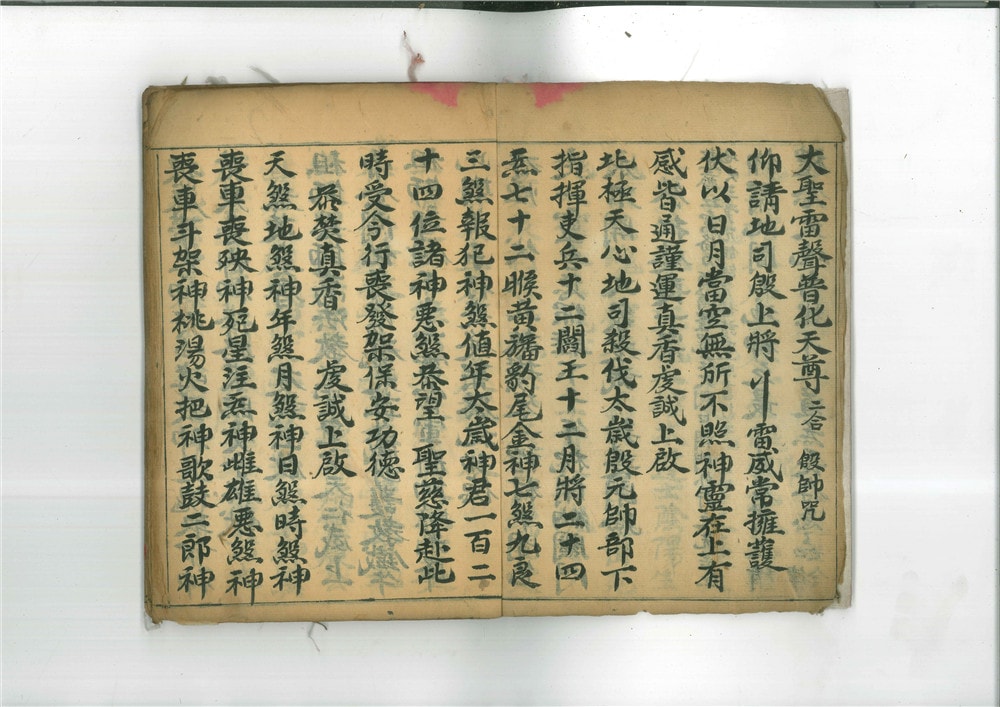 大聖雷聲普化天尊 二合 殷帥咒
仰請地司殷上將 〢雷威常擁護
伏以日月當空無所不照神靈在上有
感皆通謹運真香虔誠上啟
北極天心地司殺伐太歲殷元帥部下
指揮吏兵十二闕王十二月將二十四
炁七十二睺黃旛豹尾金神七煞九良
三煞報犯神煞值年太歲神君一百二
十四位諸神惡煞恭望聖慈降赴此
時受今行喪發架保安功德
恭焚真香 虔誠上啟
天煞地煞神年煞月煞神日煞時煞神
喪車喪殃神死星注炁神雌雄惡煞神
喪車斗架神桃湯火把神歌鼓二郎神